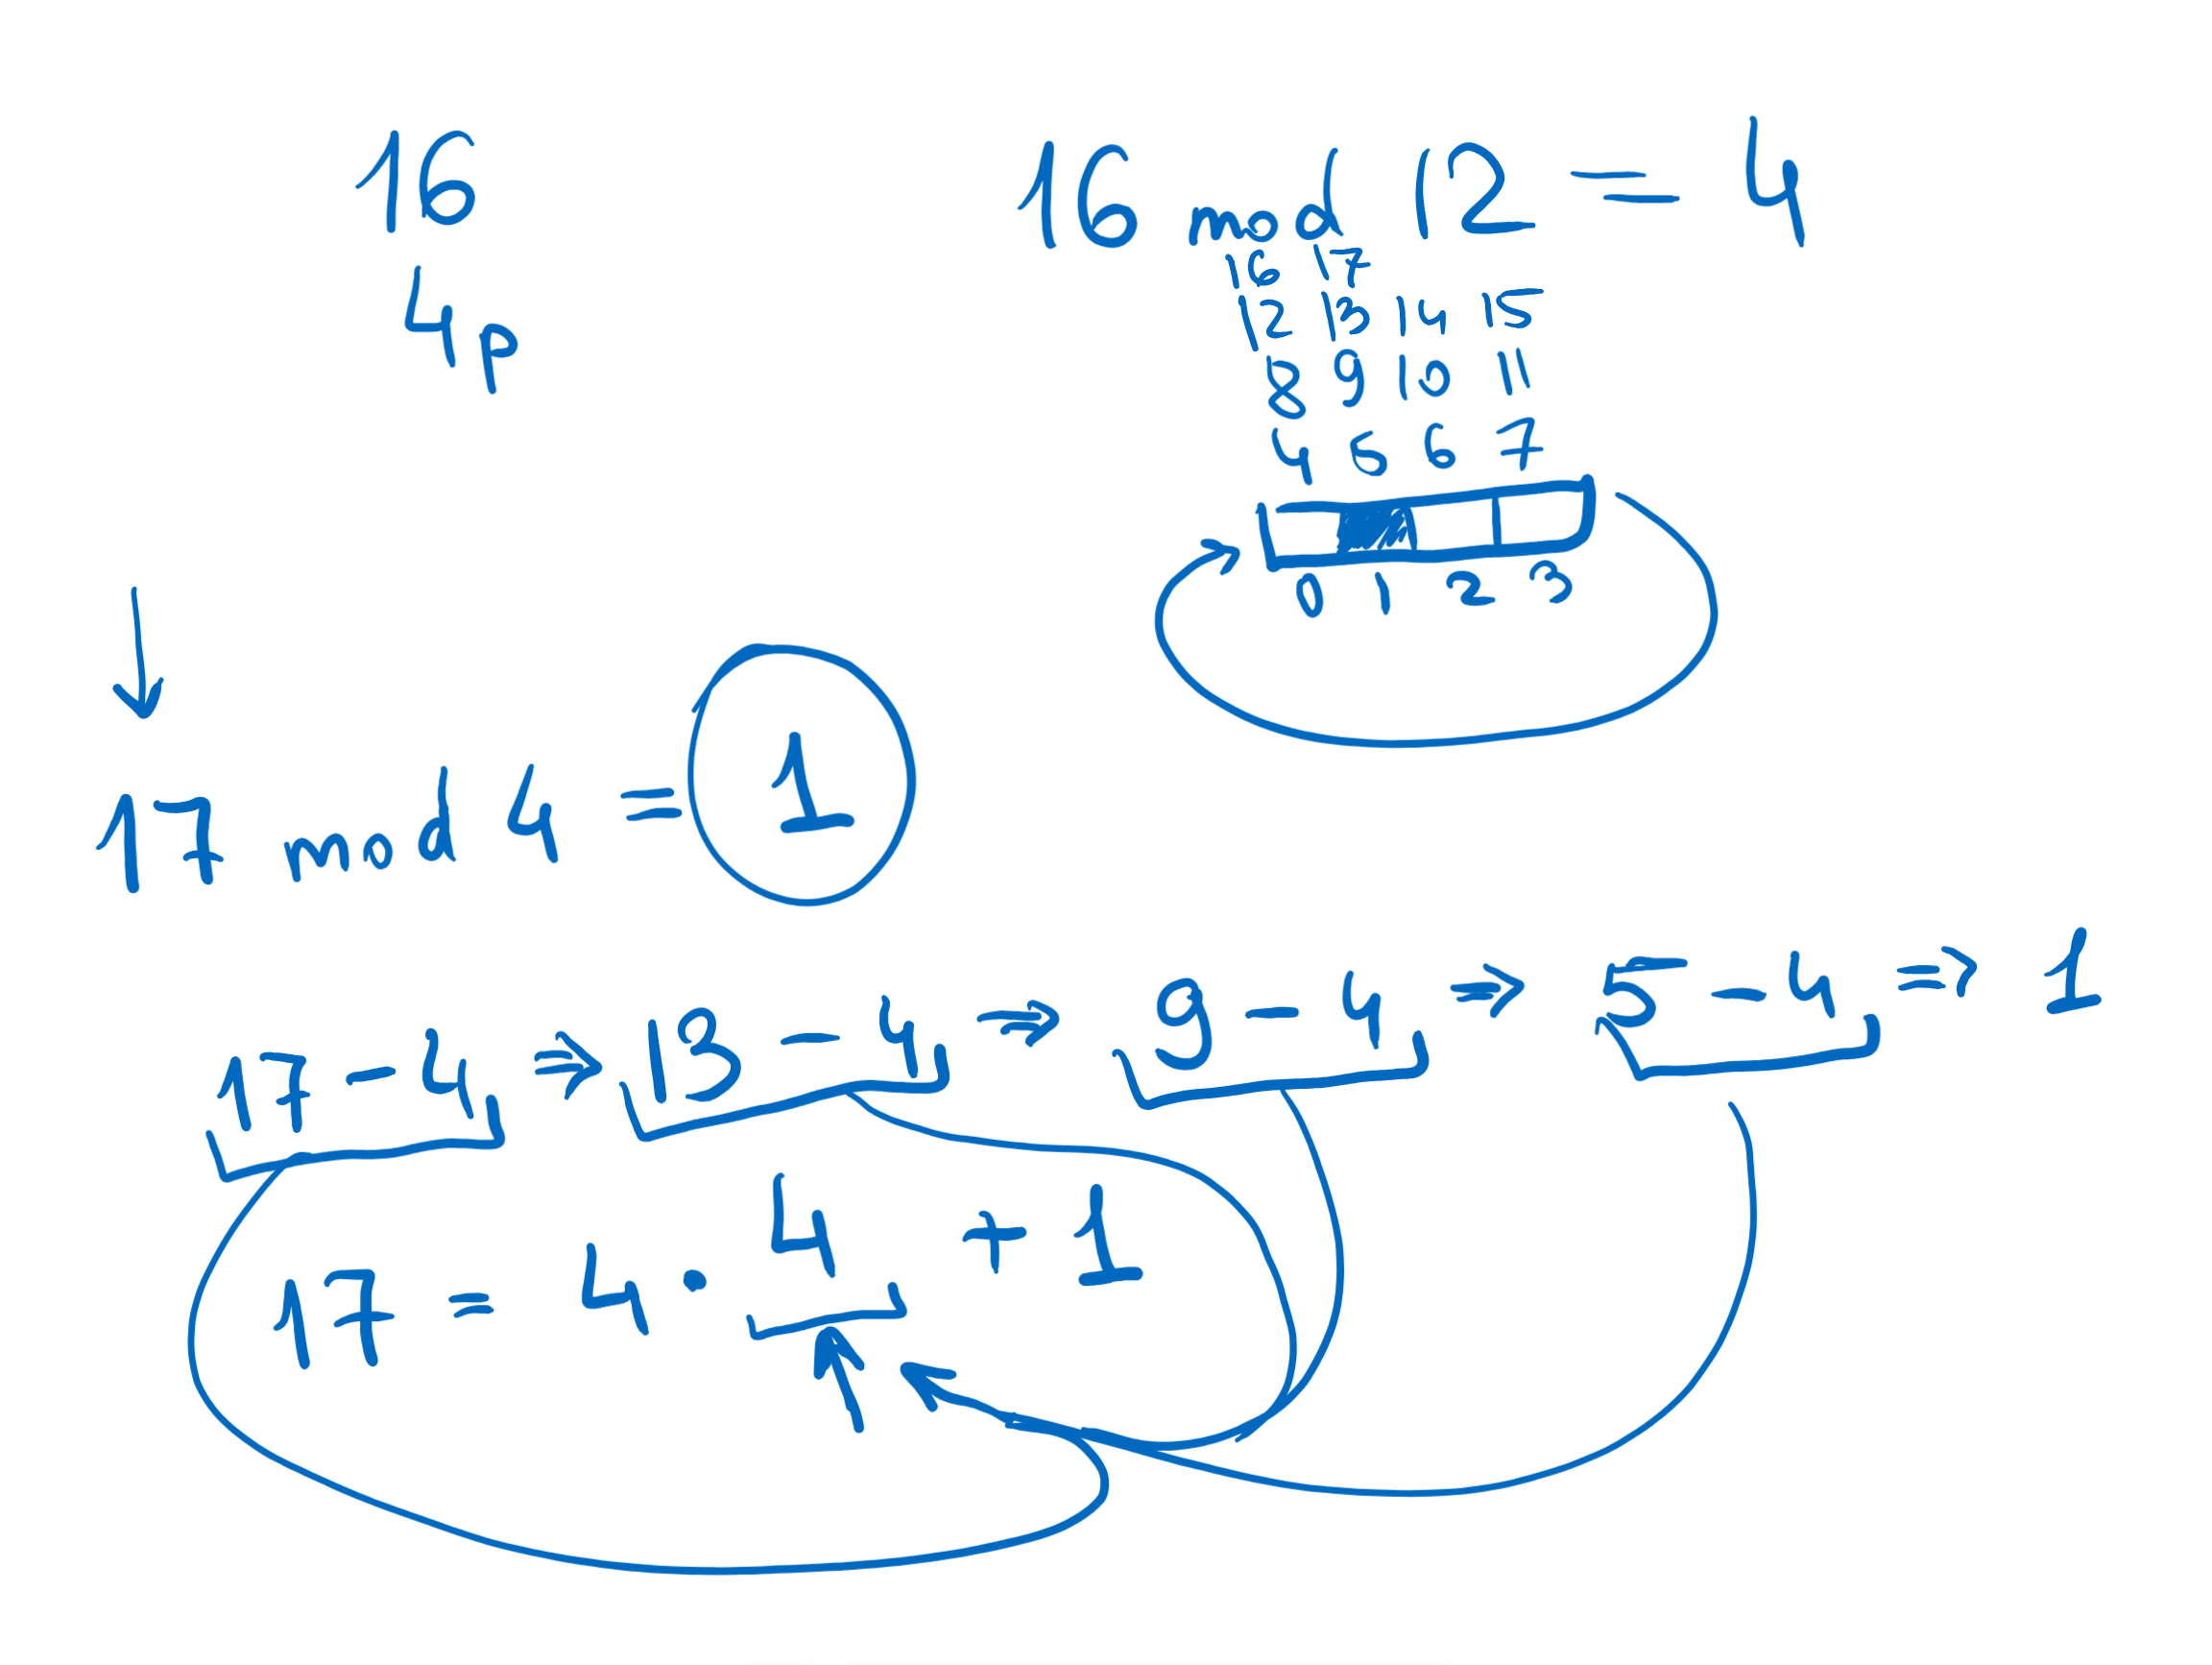 16
4p
16 mod 12 = 4
16 17
12 13 14 15
8 9 10 11
4 5 6 7
0 1 2 3
17 mod 4 = 1
17 - 4 ⇒ 13 - 4 ⇒ 9 - 4 ⇒ 5 - 4 ⇒ 1
17 = 4 · 4 + 1